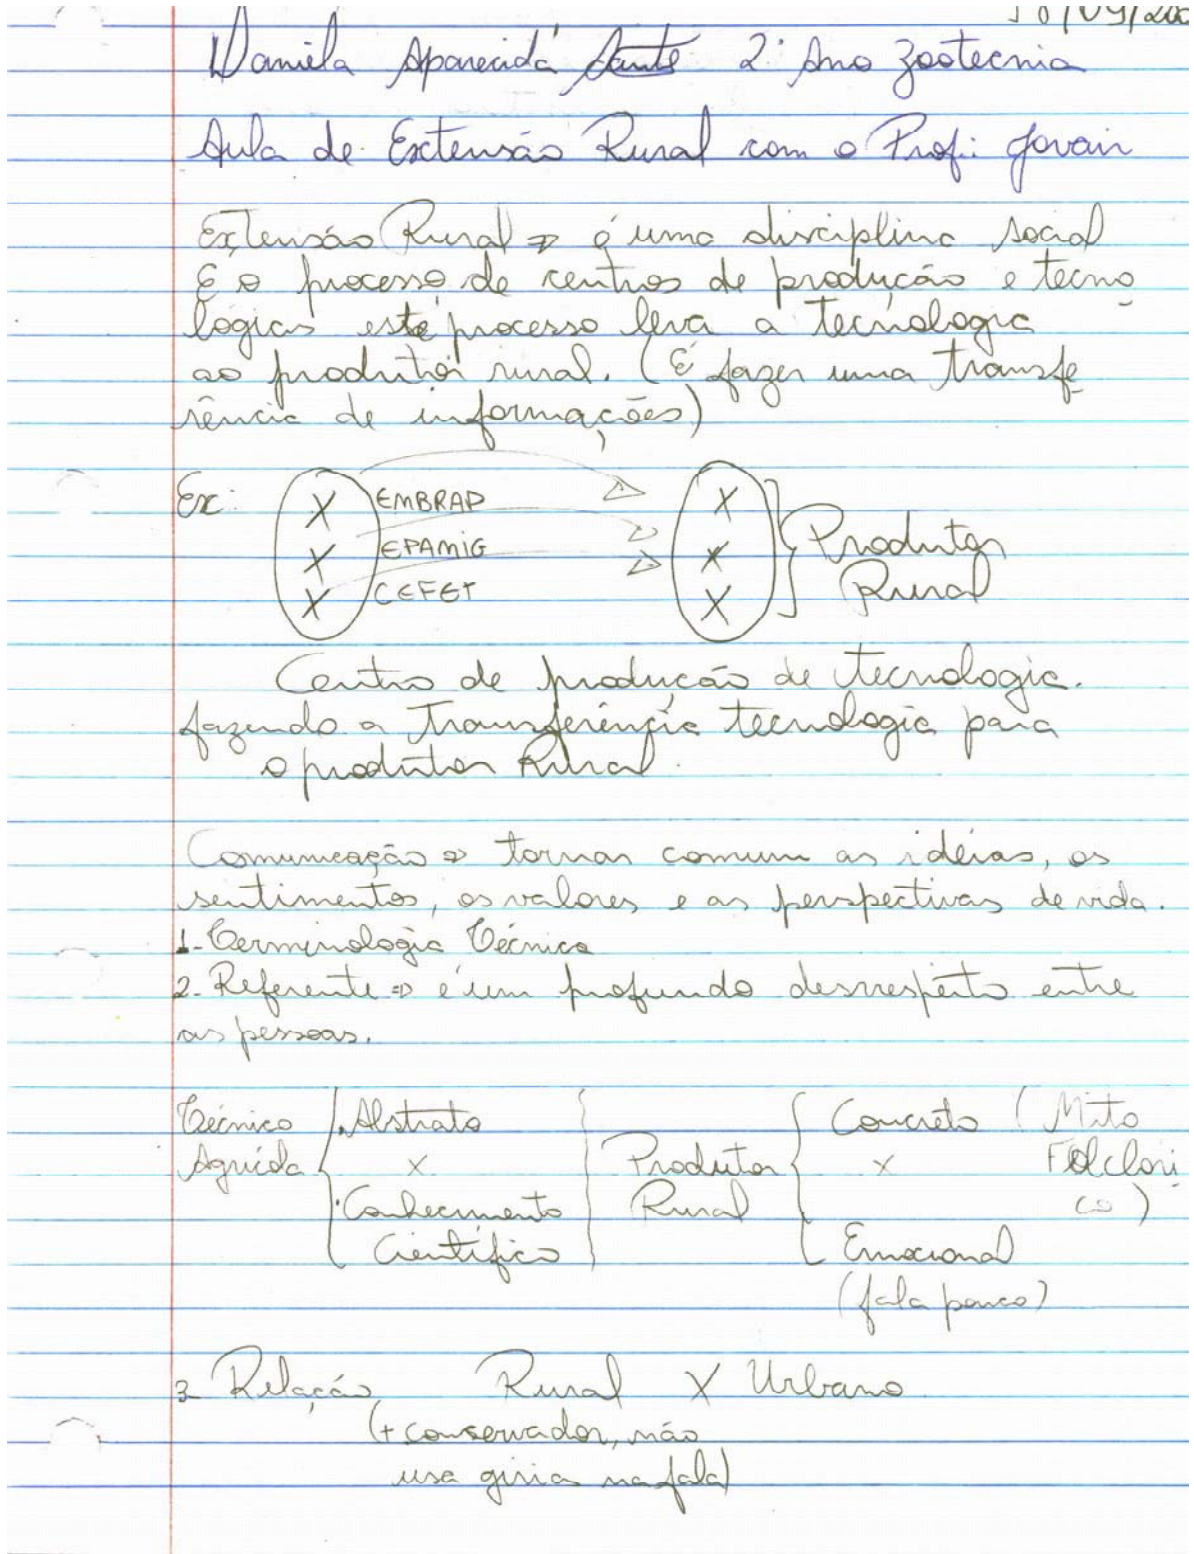 10/09/200
Daniela Aparecida 2º Ano Zootecnia
Aula de Extensão Rural com o Prof: Jovair
Extensão Rural ⇒ é uma disciplina social
É o processo de centros de produção e tecno
lógicas este processo leva a tecnologia
ao produtor rural. (É fazer uma transfe
rência de informações)
Ex: X EMBRAP X
X EPAMIG X Produtor
X CEFET X Rural
Centro de produção de tecnologia.
fazendo a transferência tecnologia para
o produtor Rural.
Comunicação ⇒ tornar comum as idéias, os
sentimentos, os valores e as perspectivas de vida.
1- Terminologia Técnica
2- Referente ⇒ é um profundo desrespeito entre
as pessoas.
Técnico Abstrato Concreto (Mito
Agrícola X Produtor X Folclóri
Conhecimento Rural co)
Científico Emocional
(fala pouco)
3- Relação Rural X Urbano
(+ conservador, não
usa gíria na fala)